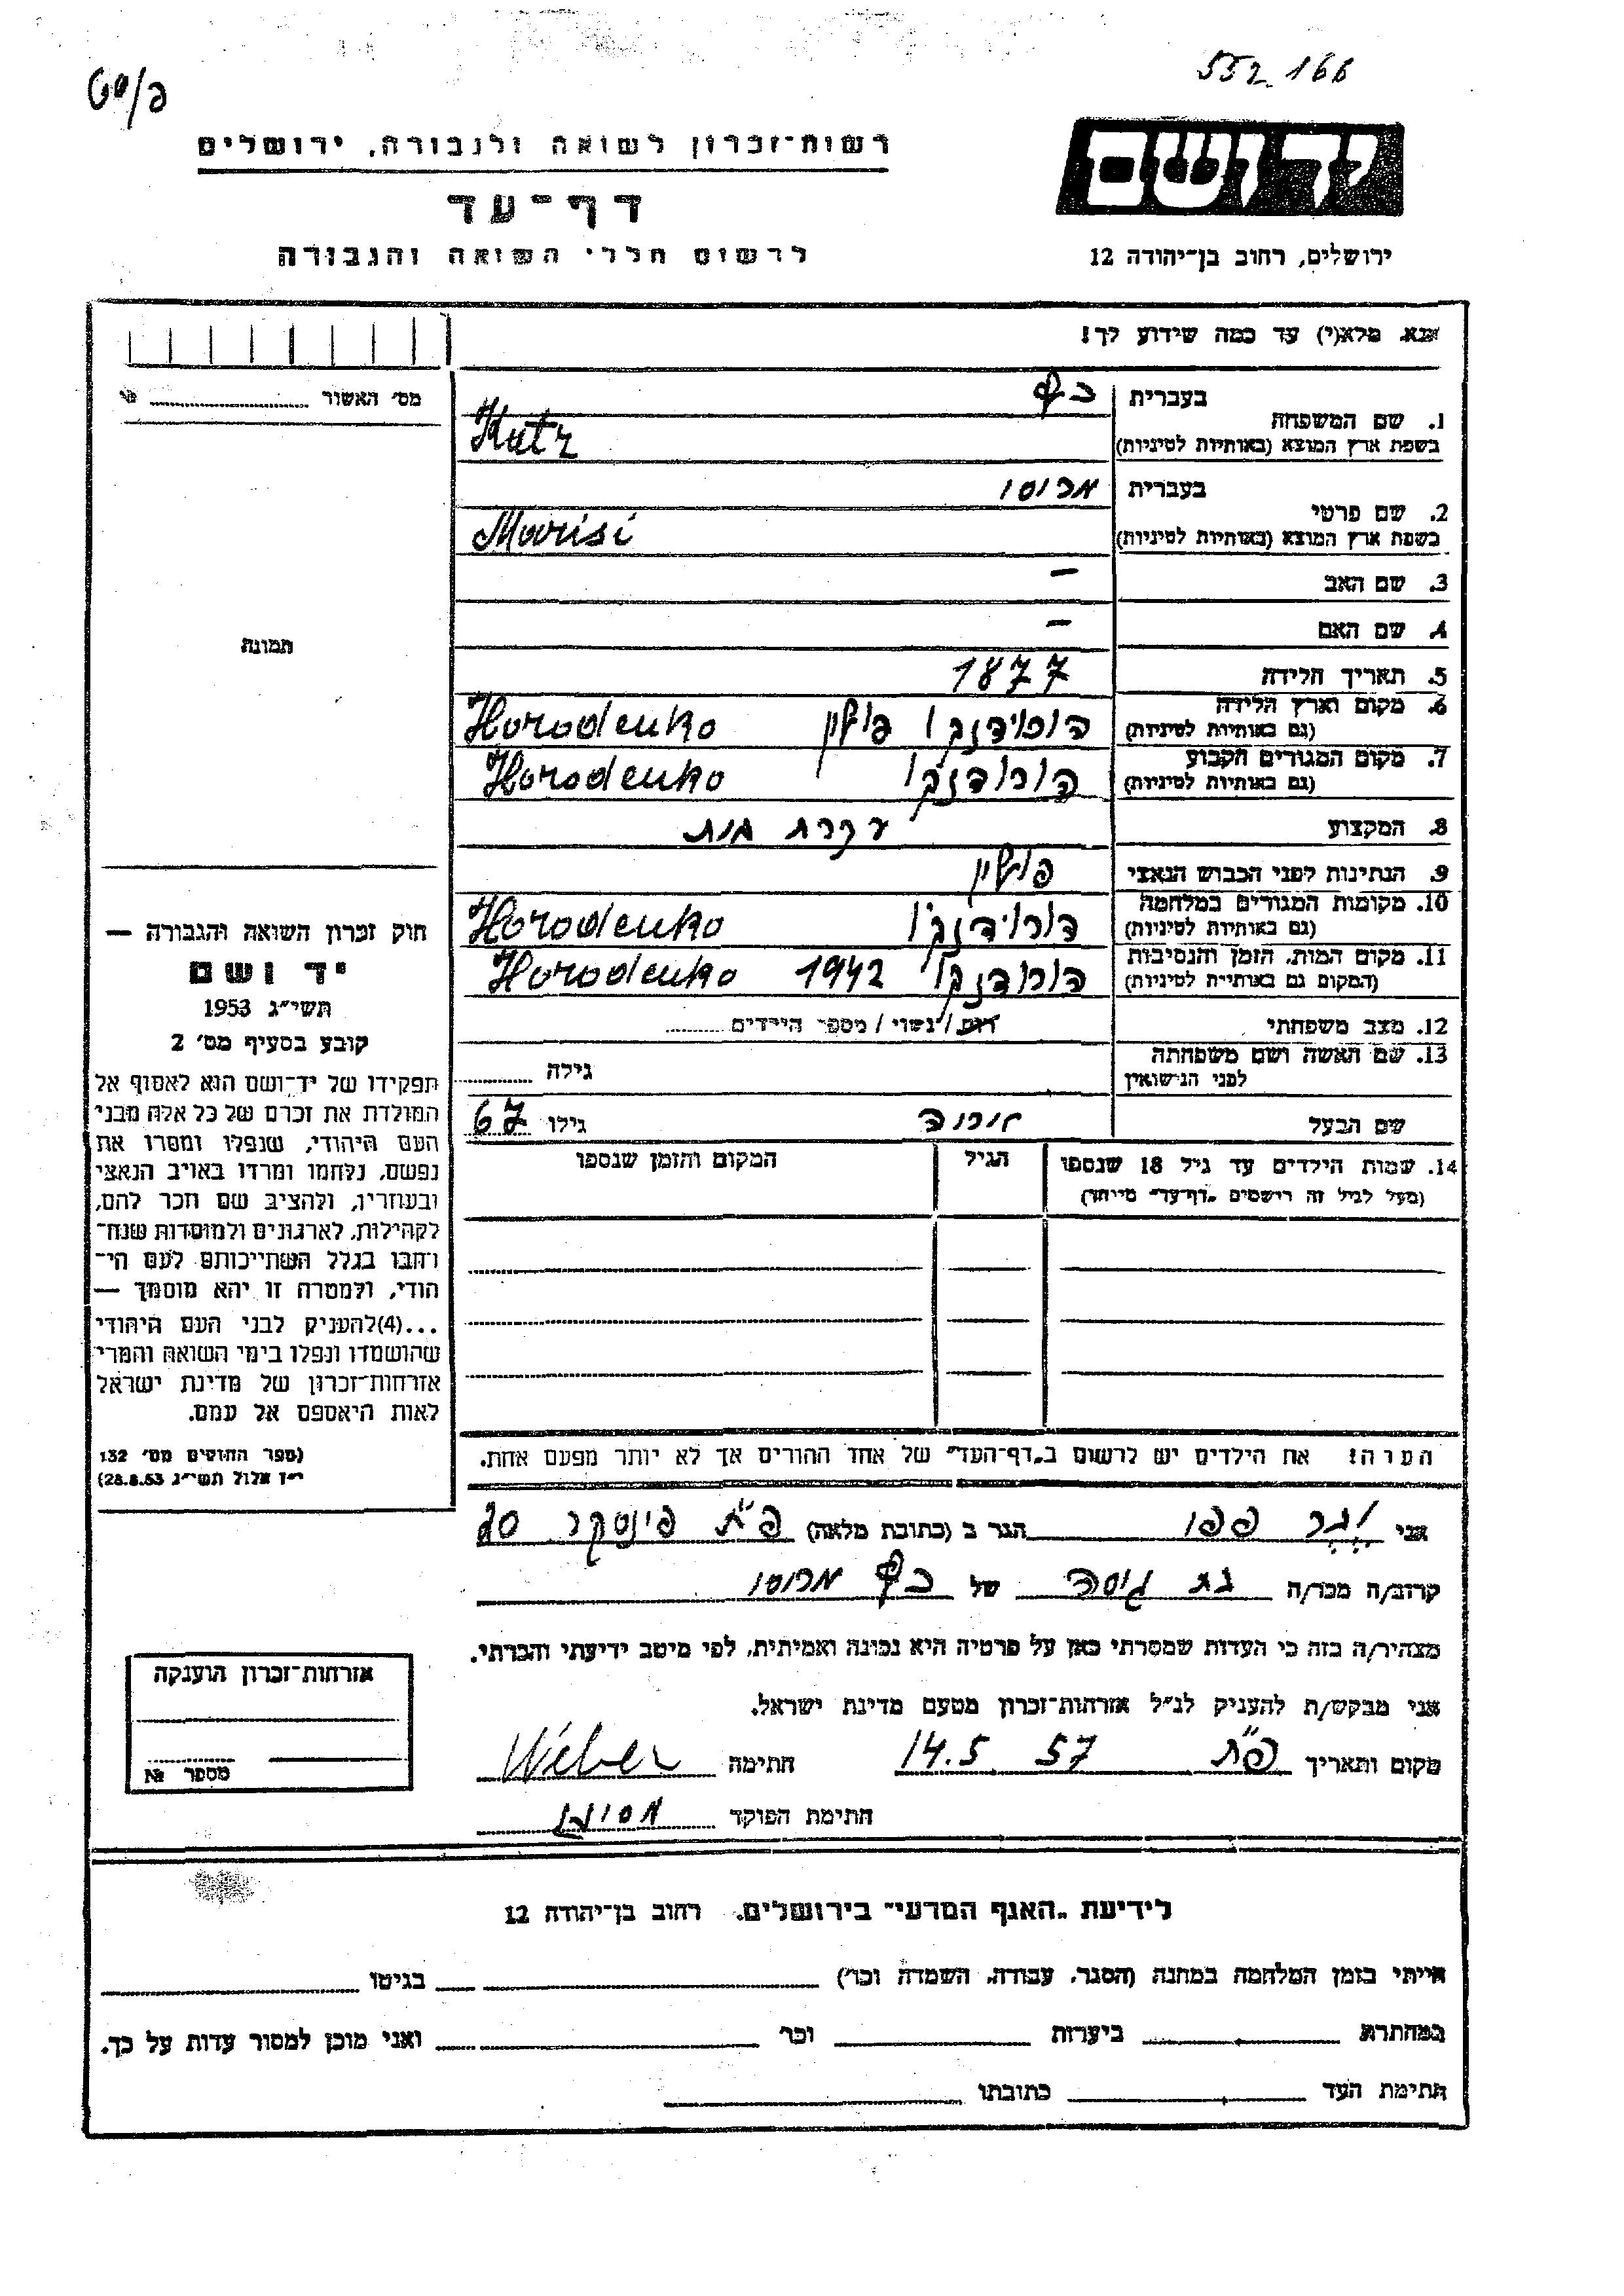 552 166
פ/סט
יד ושם
רשות־זכרון לשואה ולגבורה, ירושלים
דף־עד
לרשום חללי השואה והגבורה
ירושלים, רחוב בן־יהודה 12
אנא מלא(י) עד כמה שידוע לך!
מס׳ האשור
1. שם המשפחה
בעברית כץ
בשפת ארץ המוצא (באותיות לטיניות) Katz
2. שם פרטי
בעברית
בשפת ארץ המוצא (באותיות לטיניות)
3. שם האב –
4. שם האם –
תמונה
5. תאריך הלידה 1877
6. מקום וארץ הלידה
(גם באותיות לטיניות) פולין Horodenko
7. מקום המגורים הקבוע
(גם באותיות לטיניות) הורודנקו Horodenko
8. המקצוע עקרת בית
9. הנתינות לפני הכבוש הנאצי פולין
10. מקומות המגורים במלחמה
(גם באותיות לטיניות) Horodenko
11. מקום המות, הזמן והנסיבות
(המקום גם באותיות לטיניות) הורודנקו 1942 Horodenko
12. מצב משפחתי רווק / נשוי / מספר הילדים
13. שם האשה ושם משפחתה
לפני הנישואין גילה
שם הבעל גילו 67
14. שמות הילדים עד גיל 18 שנספו הגיל המקום והזמן שנספו
(מעל לגיל זה רושמים „דף־עד״ מיוחד)
חוק זכרון השואה והגבורה —
יד ושם
תשי״ג 1953
קובע בסעיף מס׳ 2
תפקידו של יד־ושם הוא לאסוף אל
המולדת את זכרם של כל אלה מבני
העם היהודי, שנפלו ומסרו את
נפשם, נלחמו ומרדו באויב הנאצי
ובעוזריו, ולהציב שם וזכר להם,
לקהילות, לארגונים ולמוסדות שנח־
רבו בגלל השתייכותם לעם הי־
הודי, ולמטרה זו יהא מוסמך —
...(4)להעניק לבני העם היהודי
שהושמדו ונפלו בימי השואה והמרי
אזרחות־זכרון של מדינת ישראל
לאות היאספם אל עמם.
(ספר החוקים מס׳ 132
י״ז אלול תשי״ג 28.8.53)
הערה! את הילדים יש לרשום ב„דף־העד״ של אחד ההורים אך לא יותר מפעם אחת.
אני הגר ב (כתובת מלאה) פ״ת פינסקר 20
קרוב/ה מכר/ה בת גיסה של כץ
מצהיר/ה בזה כי העדות שמסרתי כאן על פרטיה היא נכונה ואמיתית, לפי מיטב ידיעתי והכרתי.
אני מבקש/ת להעניק לנ״ל אזרחות־זכרון מטעם מדינת ישראל.
מקום ותאריך פ״ת 14.5 57 חתימה Weber
חתימת הפוקד
אזרחות־זכרון הוענקה
מספר №
לידיעת „האגף המדעי״ בירושלים. רחוב בן־יהודה 12
הייתי בזמן המלחמה במחנה (הסגר, עבודה, השמדה וכו׳) בגיטו
במחתרת ביערות וכו׳ ואני מוכן למסור עדות על כך.
חתימת העד כתובתו